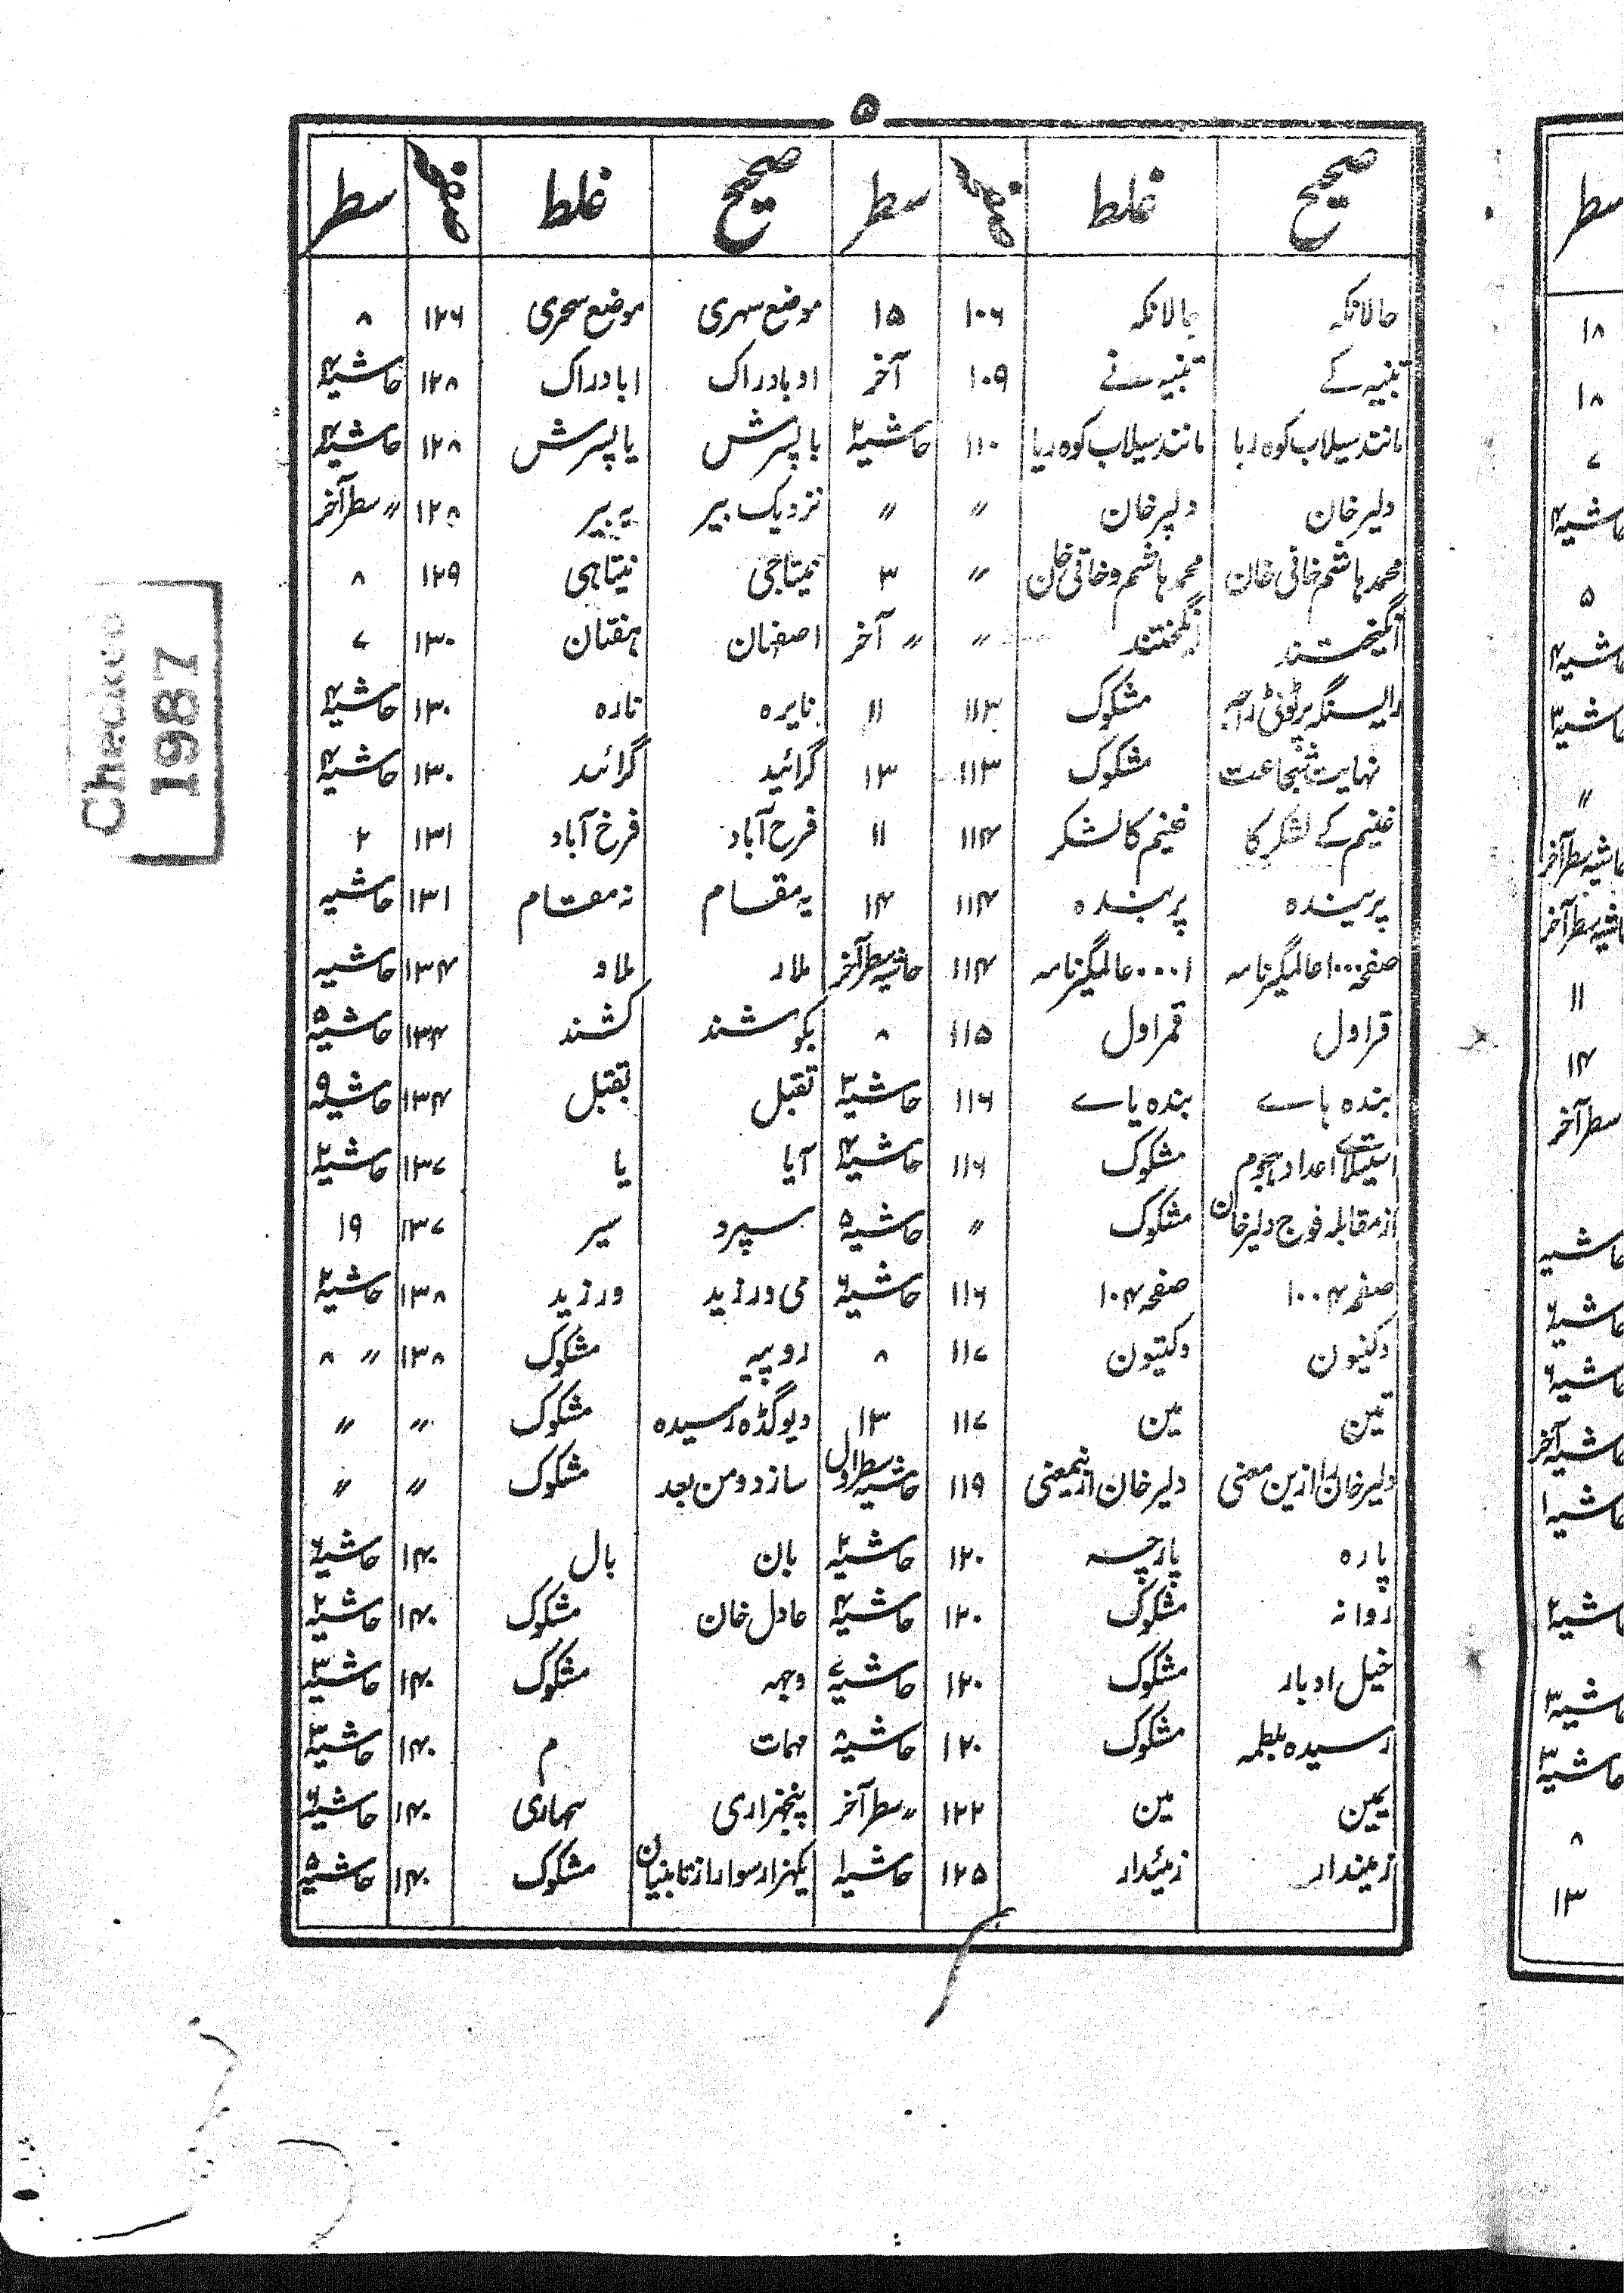 ۵
صحیح غلط صفحہ سطر صحیح غلط صفحہ سطر
حالانکہ جالانکہ ۱۰۶ ۱۵ موضع سہری موضع سحری ۱۲۶ ۸
تنبیہ کے تنبیہ نے ۱۰۹ آخر اوبادراک ابادراک ۱۲۸ حاشیہ۴
مانند سیلاب کوہ ربا مانند سیلاب کوہ ریا ۱۱۰ حاشیہ۲ باپسرش یاپسرش ۱۲۸ حاشیہ۴
دلیر خان دلپر خان 〃 〃 نزدیک بیر یہ بیر ۱۲۸ 〃 سطر آخر
محمد ہاشم خافی خان محمد ہاشم و خاقی خان 〃 ۳ نیتاجی نیتاہی ۱۲۹ ۸
انگیختند 〃 〃 آخر اصفہان ہفتان ۱۳۰ ۷
مشکوک ۱۱۳ ۱۱ نایرہ نارہ ۱۳۰ حاشیہ۴
نہایت شجاعت مشکوک ۱۱۳ ۱۳ گرائید گرائند ۱۳۰ حاشیہ۴
غنیم کے لشکر کا غنیم کا لشکر ۱۱۴ ۱۱ فرح آباد فرخ آباد ۱۳۱ ۲
پرینده پربنده ۱۱۴ ۱۴ یہ مقام نہ مقام ۱۳۱ حاشیہ
صفحہ ۱۰۰۰ عالمگیر نامہ ۱۰۰۰ عالمگیر نامہ ۱۱۴ حاشیہ سطر آخر ملار ملاو ۱۳۴ حاشیہ
قراول قمراول ۱۱۵ ۸ بکوشند کشند ۱۳۴ حاشیہ۵
بندہ ہاے بندہ یاے ۱۱۶ حاشیہ۳ تقبل بقتبل ۱۳۴ حاشیہ۹
استیلاے اعداد ہجوم مشکوک ۱۱۶ حاشیہ۴ آیا یا ۱۳۷ حاشیہ۲
از مقابلہ فوج دلیر خان مشکوک 〃 حاشیہ۵ سپرد سیر ۱۳۷ ۱۹
صفحہ ۱۰۰۴ صفحہ ۱۰۴ ۱۱۶ حاشیہ۶ می ورزید ورزید ۱۳۸ حاشیہ۲
دکنیون دکتیون ۱۱۷ ۸ روپیہ مشکوک ۱۳۸ 〃 ۸
تین مین ۱۱۷ ۱۳ دیوگڈہ رسیدہ مشکوک 〃 〃
دلیر خان ازین معنی دلیر خان ازیمعنی ۱۱۹ حاشیہ سطر اول سازد و من بعد مشکوک 〃 〃
پارہ پارچہ ۱۲۰ حاشیہ۲ بان بال ۱۴۰ حاشیہ۶
روانہ مشکوک ۱۲۰ حاشیہ۴ عادل خان مشکوک ۱۴۰ حاشیہ۲
خیل ادبار مشکوک ۱۲۰ حاشیہ۷ وجہہ مشکوک ۱۴۰ حاشیہ۳
رسیدہ بلطمہ مشکوک ۱۲۰ حاشیہ۸ مہمات م ۱۴۰ حاشیہ۳
یمین مین ۱۲۲ 〃 سطر آخر پنجہزاری سہاری ۱۴۰ حاشیہ۶
زمیندار زمیئدار ۱۲۵ حاشیہ۱ یکہزار سوار از تابنیان مشکوک ۱۴۰ حاشیہ۵
Checked
1987
سطر
۱۸
۱۸
۷
حاشیہ۴
۵
حاشیہ۴
حاشیہ۳
〃
حاشیہ سطر آخر
حاشیہ سطر آخر
۱۱
۱۴
سطر آخر
حاشیہ
حاشیہ۶
حاشیہ۶
حاشیہ آخر
حاشیہ۱
حاشیہ۲
حاشیہ۳
حاشیہ۳
۸
۱۳